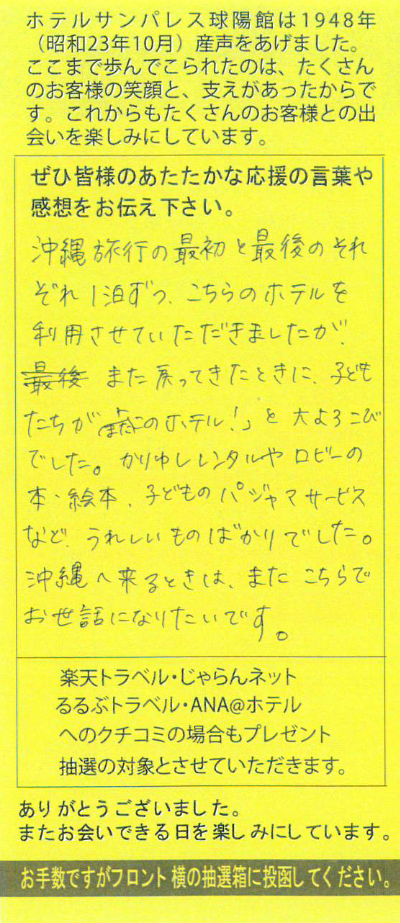 ホテルサンパレス球陽館は1948年
（昭和23年10月）産声をあげました。
ここまで歩んでこられたのは、たくさん
のお客様の笑顔と、支えがあったからで
す。これからもたくさんのお客様との出
会いを楽しみにしています。
ぜひ皆様のあたたかな応援の言葉や
感想をお伝え下さい。
沖縄旅行の最初と最後のそれ
ぞれ1泊ずつ、こちらのホテルを
利用させていただきましたが、
最後 また戻ってきたときに、子ども
たちが「このホテル!」と大よろこび
でした。かりゆしレンタルやロビーの
本・絵本、子どものパジャマサービス
など、うれしいものばかりでした。
沖縄へ来るときは、またこちらで
お世話になりたいです。
楽天トラベル・じゃらんネット
るるぶトラベル・ANA@ホテル
へのクチコミの場合もプレゼント
抽選の対象とさせていただきます。
ありがとうございました。
またお会いできる日を楽しみにしています。
お手数ですがフロント横の抽選箱に投函してください。